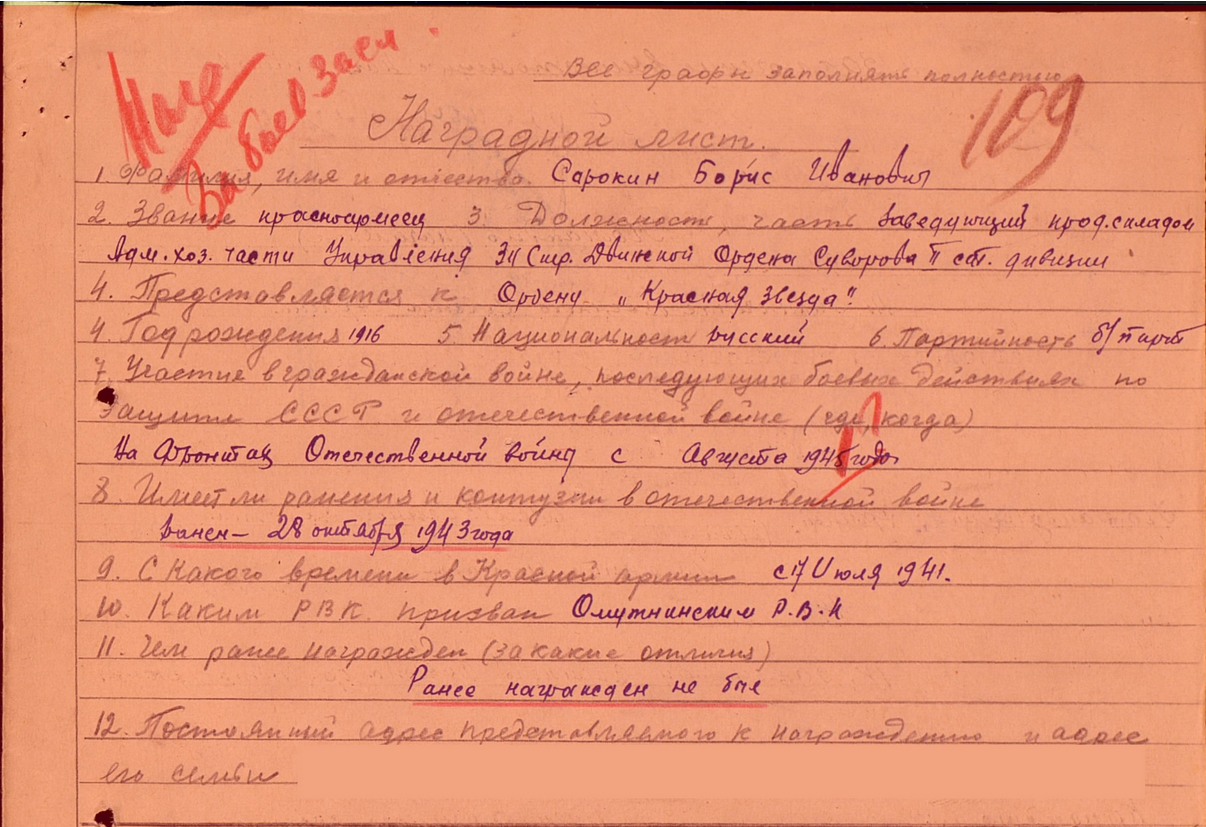 Все графы заполнять полностью
109
За боев засл
Наградной лист.
1. Фамилия, имя и отчество Сарокин Борис Иванович
2. Звание красноармеец 3 Должность, часть Заведующий прод.складом
Адм. хоз. части Управления Стр. Двинской Ордена Суворова II ст. дивизии
4. Представляется к Ордену „Красная Звезда"
4. Год рождения 1916 5. Национальность русский 6. Партийность б/парт
7. Участие в гражданской войне, последующих боевых действиях по
защите СССР и отечественной войне (где, когда)
На Фронтах Отечественной войны с Августа года
8. Имеет ли ранения и контузии в отечественной войне
ранен – 28 октября 1943 года
9. С Какого времени в Красной армии с 17 Июля 1941.
10. Каким РВК. призван Омутнинским Р.В.К
11. Чем ранее награжден (за какие отличия)
Ранее награжден не был
12. Постоянный адрес представляемого к награждению и адрес
его семьи